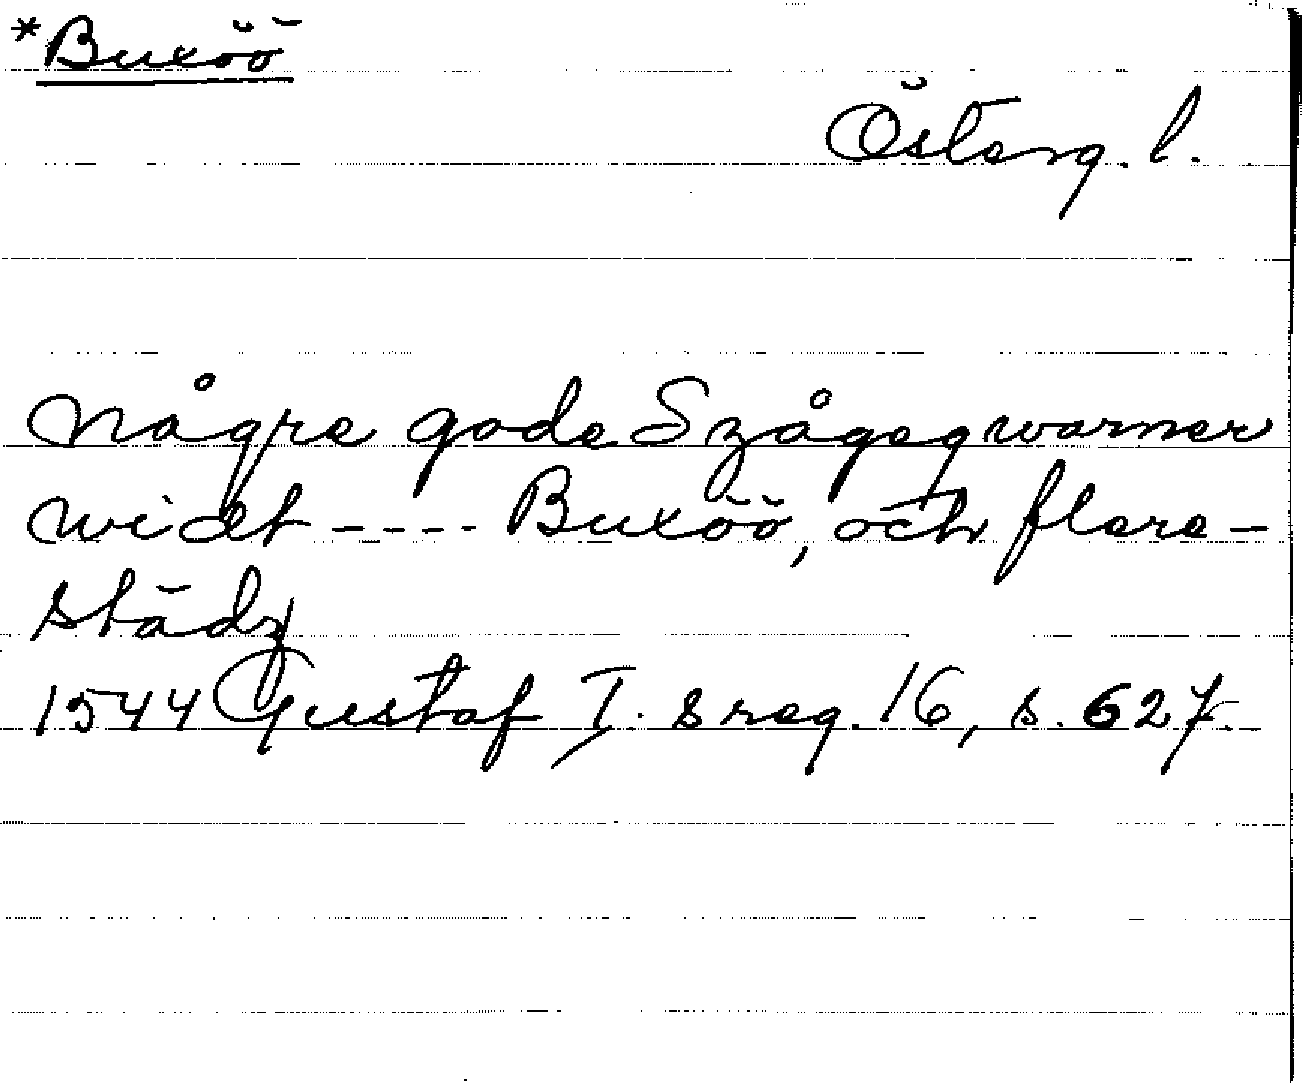 *Buxöö
Österg. l.
Någre gode Szågeqwarner
widt ---- Buxöö, och flere-
städz
1544 Gustaf I. s reg. 16, s. 627.